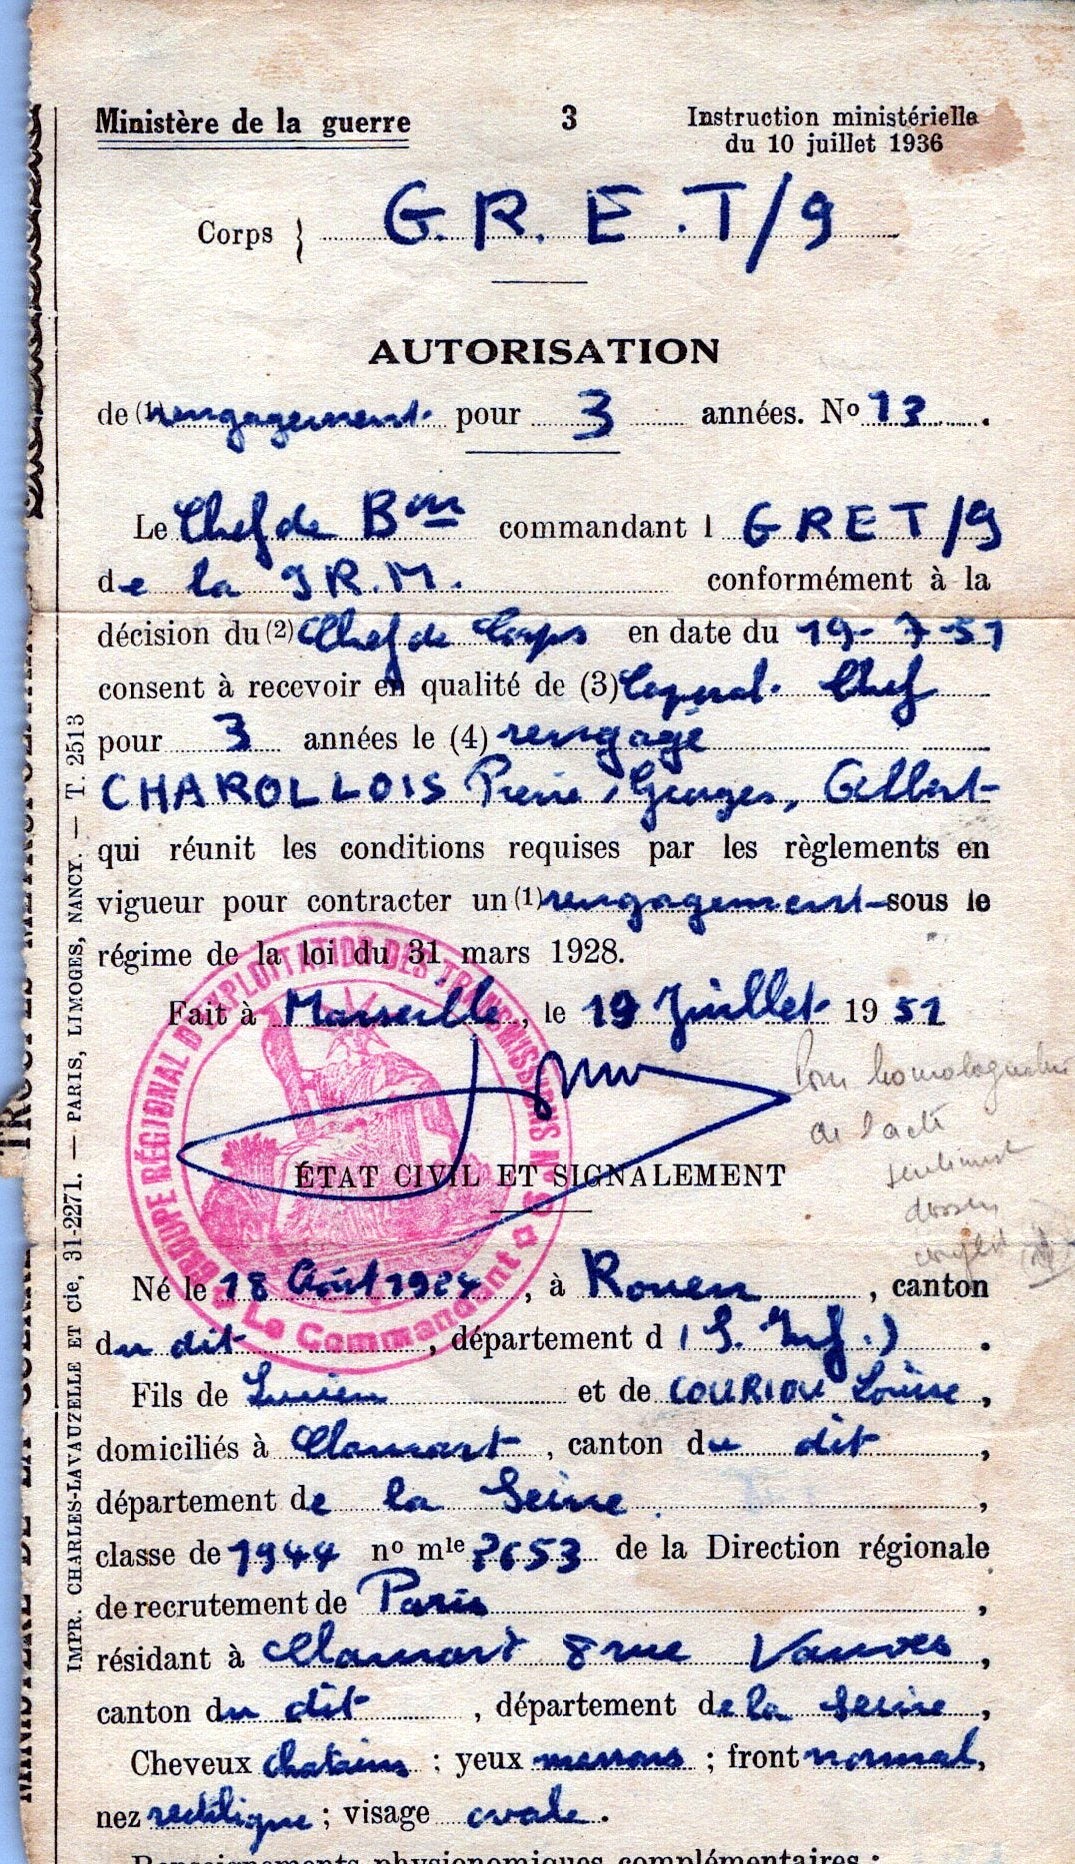 Ministère de la guerre 3 Instruction ministérielle
du 10 juillet 1936
Corps } G.R.E.T/9
AUTORISATION
de (1) rengagement pour 3 années. No 13.
Le Chef de Bon commandant l GRET/9
de la 9 R.M. conformément à la
décision du (2) Chef de Corps en date du 19-7-51
consent à recevoir en qualité de (3) Caporal Chef
pour 3 années le (4) rengagé
CHAROLLOIS Pierre, Georges, Gilbert
qui réunit les conditions requises par les règlements en
vigueur pour contracter un (1) rengagement sous le
régime de la loi du 31 mars 1928.
Fait à Marseille, le 19 Juillet 1951
Pour homologation
de l'acte
seulement
dossier
complet
ÉTAT CIVIL ET SIGNALEMENT
GROUPE RÉGIONAL D'EXPLOITATION DES TRANSMISSIONS N° 9
Le Commandant
Né le 18 Août 1924, à Rouen, canton
du dit, département d (S. Inf.).
Fils de Lucien et de COURIOU Louise,
domiciliés à Clamart, canton du dit,
département de la Seine,
classe de 1944 no mle 7653 de la Direction régionale
de recrutement de Paris,
résidant à Clamart 8 rue Vanves,
canton du dit, département de la Seine,
Cheveux chatains ; yeux marrons ; front normal,
nez rectiligne ; visage ovale.
Renseignements physionomiques complémentaires :
IMPR. CHARLES-LAVAUZELLE ET Cie, 31-2271. — PARIS, LIMOGES, NANCY. — T. 2513